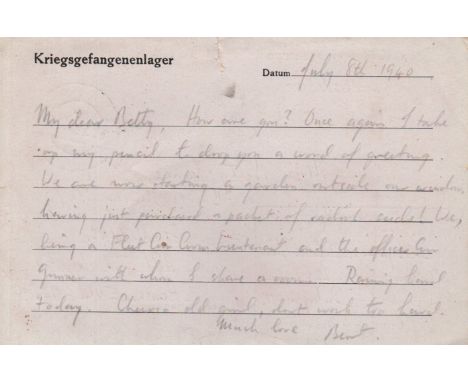 Kriegsgefangenenlager
Datum July 8th 1940
My dear Betty, How are you? Once again I take
up my pencil to drop you a word of greeting.
We are now starting a garden outside our window,
having just purchased a packet of radish seeds! We,
being a Fleet Air Arm Lieutenant and the officer Air
Gunner with whom I share a room. Raining hard
today. Cheerio old girl, don't work too hard.
Much love